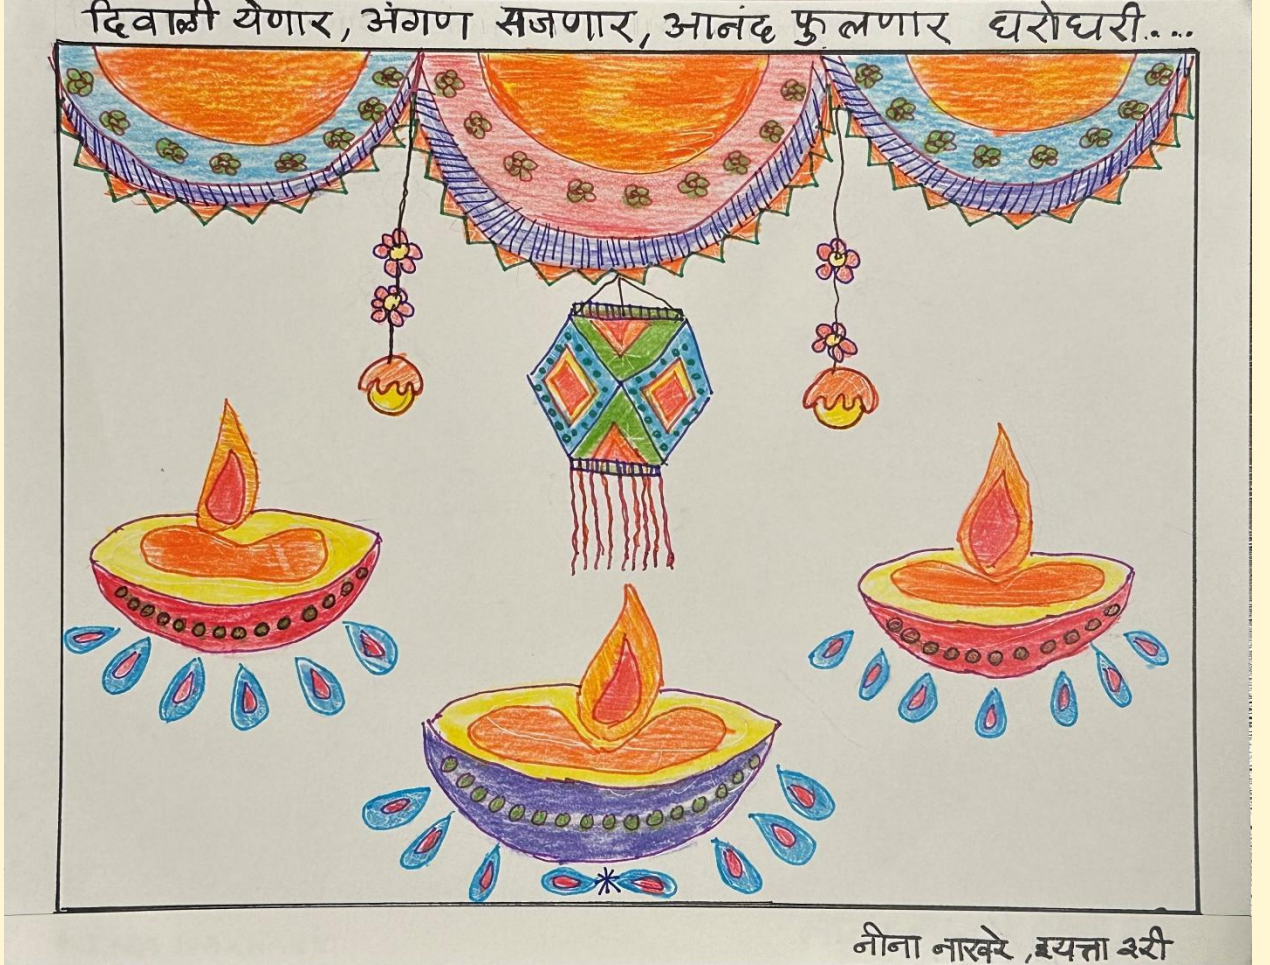 दिवाळी येणार, अंगण सजणार, आनंद फुलणार घरोघरी....
नीना नाखरे, इयत्ता ३री